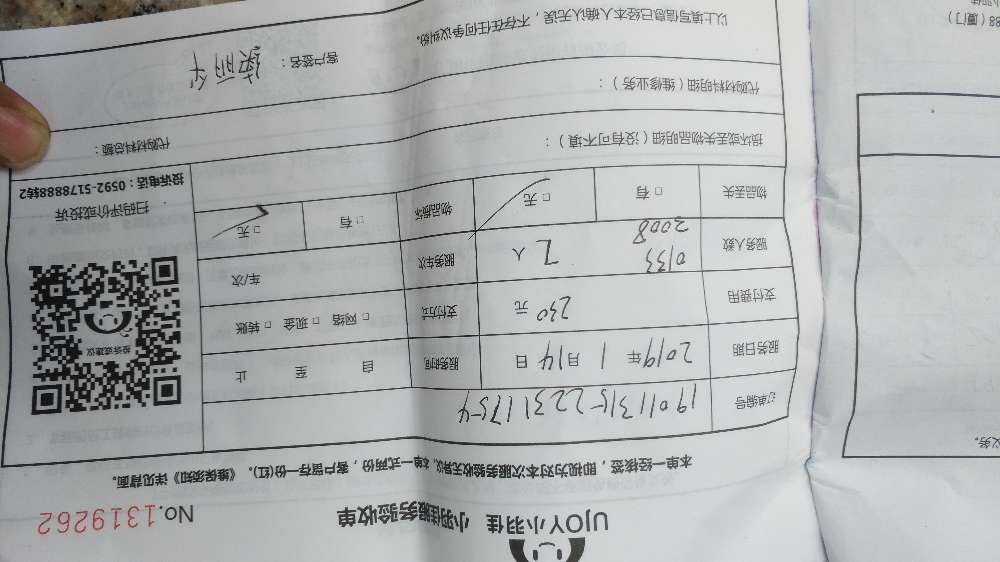 UJOY小羽佳 小羽佳服务验收单 No.1319262
本单一经核签，即视为对本次服务验收无异议。本单一式两份，客户留存一份(红)。《维保须知》详见背面。
订单编号 1901131522311754
服务日期 2019年1月14日 服务时间 自 至 止
支付费用 230元 支付方式 □网络 □现金 □转账
服务人数 0133 2008 2人 服务车次 车/次
物品丢失 □有 □无 物品损坏 □有 □无
投诉或建议
扫码评价或投诉
投诉电话：0592-5178888转2
损坏或丢失物品明细（没有可不填）：
代购材料明细（维修业务）： 代购材料总额：
以上填写信息已经本人确认无误，不存在任何争议纠纷。 客户签名：
88（厦门）
议务。